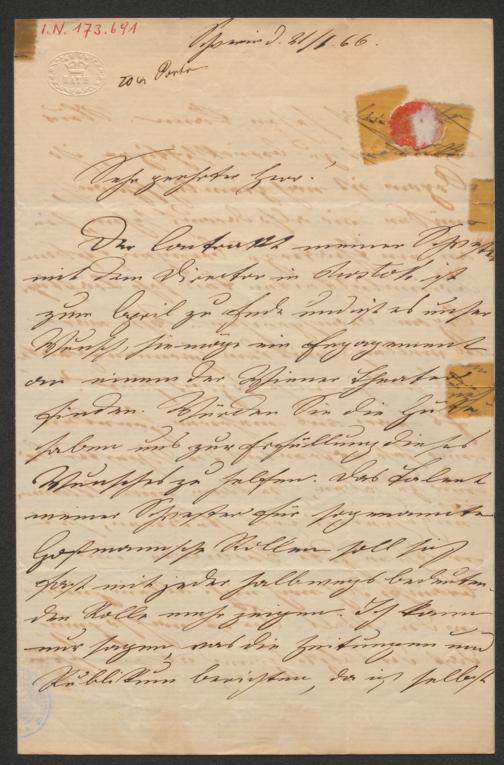 I.N. 173.691
BATH
Schwerin d. 21/1. 66.
Sehr geehrter Herr!
Der Contrakt meiner Schwester
mit dem Director in Rostock ist
zum April zu Ende und ist es unser
Wunsch, sie möge ein Engagement
an einem der Wiener Theater
finden. Würden Sie die Güte
haben uns zur Erfüllung dieses
Wunsches zu helfen. Das Talent
meiner Schwester für sogenannte
Goßmannsche Rollen soll sich
fast mit jeder halbwegs bedeuten-
den Rolle mehr zeigen. Ich kann
nur sagen, was die Zeitungen und
Publikum berichten, da ich selbst